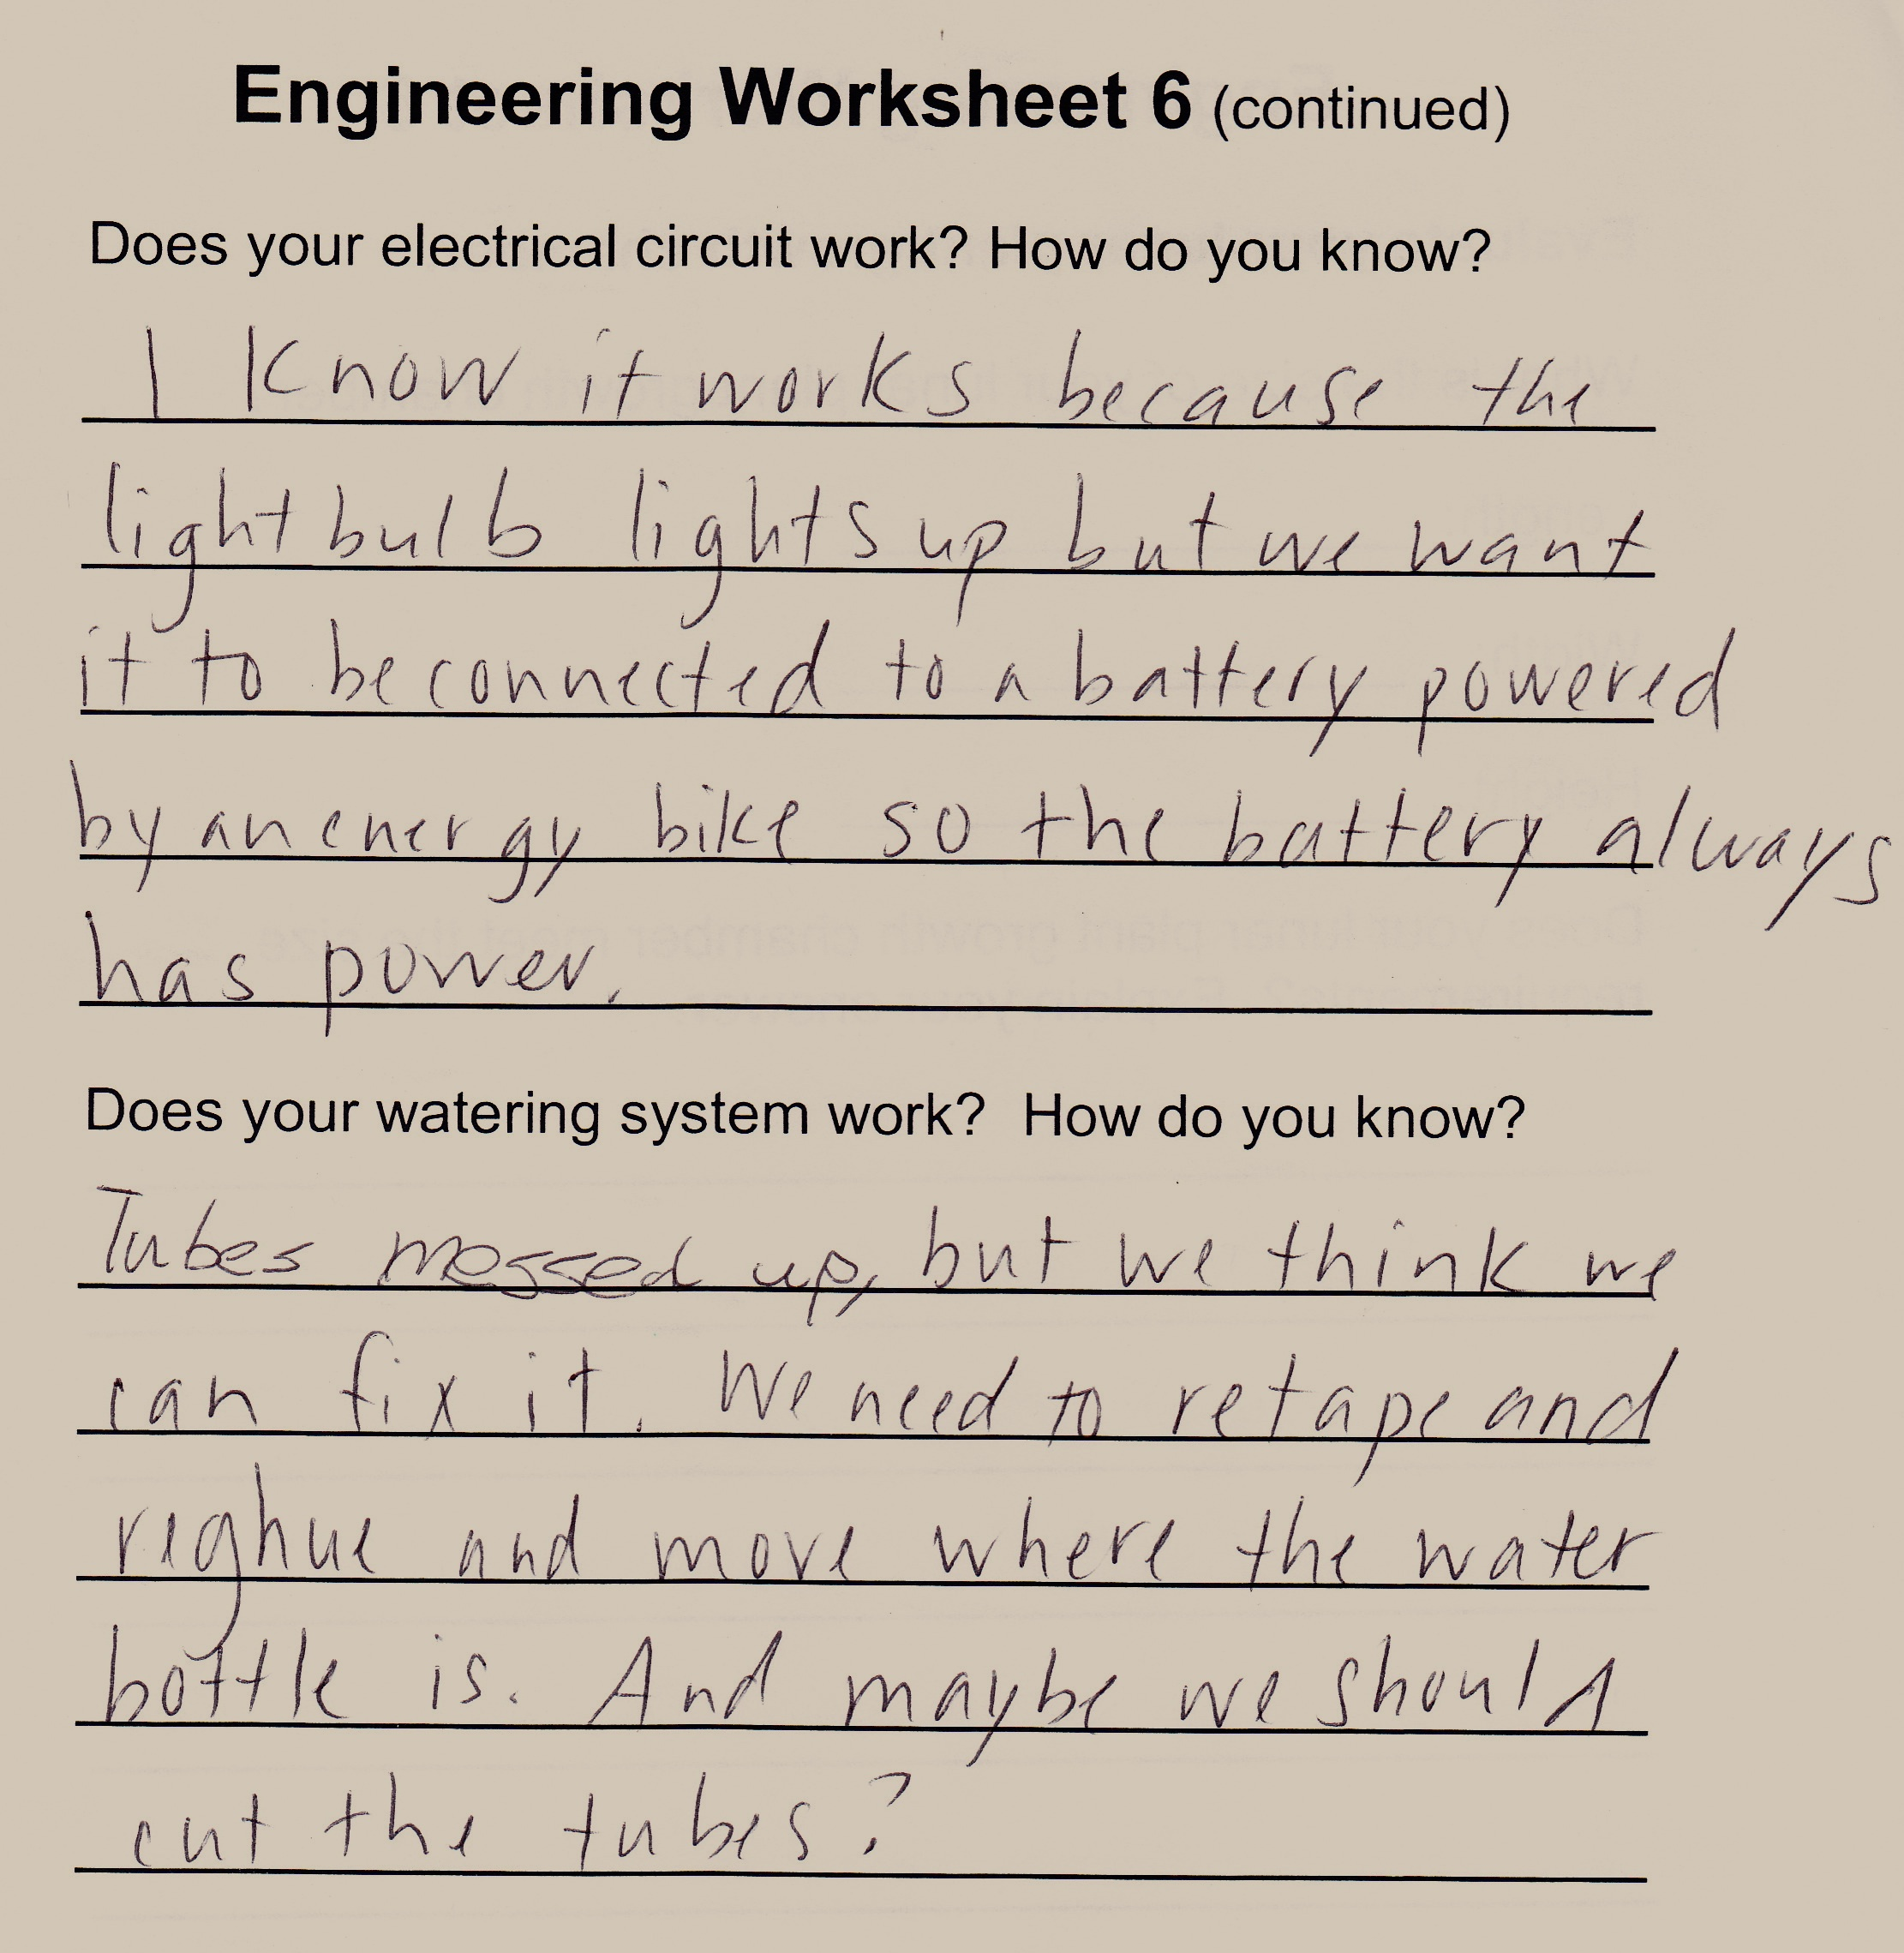 Engineering Worksheet 6 (continued)
Does your electrical circuit work? How do you know?
I know it works because the
light bulb lights up but we want
it to be connected to a battery powered
by an energy bike so the battery always
has power.
Does your watering system work? How do you know?
Tubes messed up, but we think we
can fix it. We need to retape and
reghue and move where the water
bottle is. And maybe we should
cut the tubes?